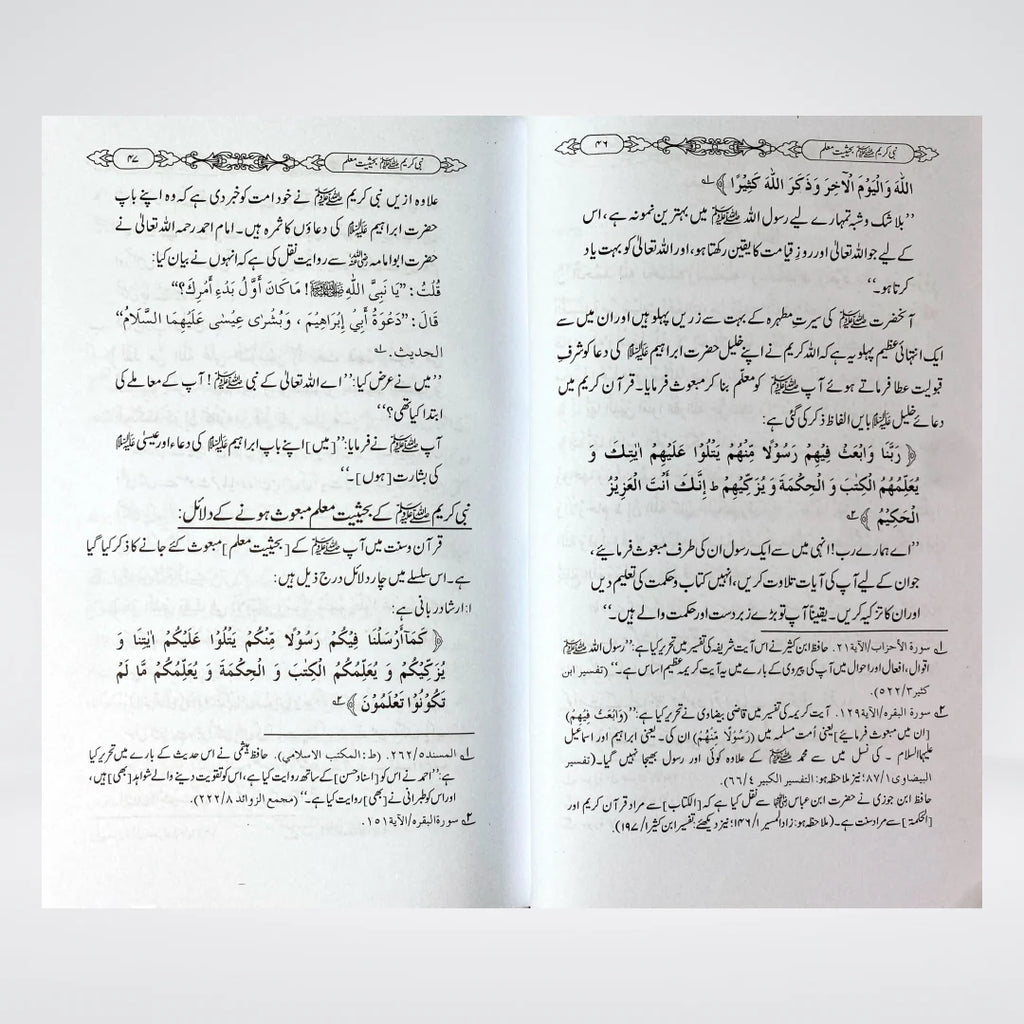 نبی کریم ﷺ بحیثیت معلم
۴۶
اللّٰهَ وَالْيَوْمَ الْاٰخِرَ وَذَكَرَ اللّٰهَ كَثِيْرًا ﴾ ۱؎
’’بلا شک و شبہ تمہارے لیے رسول اللہ ﷺ میں بہترین نمونہ ہے، اس
کے لیے جو اللہ تعالیٰ اور روزِ قیامت کا یقین رکھتا ہو، اور اللہ تعالیٰ کو بہت یاد
کرتا ہو۔‘‘
آنحضرت ﷺ کی سیرتِ مطہرہ کے بہت سے زریں پہلو ہیں اور ان میں سے
ایک انتہائی عظیم پہلو یہ ہے کہ اللہ کریم نے اپنے خلیل حضرت ابراہیم علیہ السلام کی دعا کو شرفِ
قبولیت عطا فرماتے ہوئے آپ ﷺ کو معلّم بنا کر مبعوث فرمایا۔ قرآن کریم میں
دعائے خلیل علیہ السلام بایں الفاظ ذکر کی گئی ہے:
﴿ رَبَّنَا وَابْعَثْ فِيْهِمْ رَسُوْلًا مِّنْهُمْ يَتْلُوْا عَلَيْهِمْ اٰيٰتِكَ وَ
يُعَلِّمُهُمُ الْكِتٰبَ وَ الْحِكْمَةَ وَ يُزَكِّيْهِمْ ط اِنَّكَ أَنْتَ الْعَزِيْزُ
الْحَكِيْمُ ﴾ ۲؎
’’اے ہمارے رب! انہی میں سے ایک رسول ان کی طرف مبعوث فرمایئے،
جو ان کے لیے آپ کی آیات تلاوت کریں، انہیں کتاب و حکمت کی تعلیم دیں
اور ان کا تزکیہ کریں۔ یقیناً آپ تو بڑے زبردست اور حکمت والے ہیں۔‘‘
۱؎ سورة الأحزاب/الآية ۲۱. حافظ ابن کثیر نے اس آیت شریفہ کی تفسیر میں تحریر کیا ہے: ’’رسول اللہ ﷺ
اقوال، افعال اور احوال میں آپ کی پیروی کے بارے میں یہ آیت کریمہ عظیم اساس ہے۔‘‘ (تفسير ابن
كثير ۵۲۲/۳).
۲؎ سورة البقره/الآية ۱۲۹. آیت کریمہ کی تفسیر میں قاضی بیضاوی نے تحریر کیا ہے: ’’(وَابْعَثْ فِيْهِمْ)
[ان میں مبعوث فرمایئے] یعنی اُمت مسلمہ میں (رَسُوْلًا مِّنْهُمْ) ان کی۔ یعنی ابراہیم اور اسماعیل
علیہما السلام۔ کی نسل میں سے محمد ﷺ کے علاوہ کوئی اور رسول بھیجا نہیں گیا۔ (تفسير
البيضاوي ۸۷/۱؛ نیز ملاحظہ ہو: التفسير الكبير ۶۶/۴)
حافظ ابن جوزی نے حضرت ابن عباس رضی اللہ عنہما سے نقل کیا ہے کہ [الکتاب] سے مراد قرآن کریم اور
[الحکمۃ] سے مراد سنت ہے۔ (ملاحظہ ہو: زاد المسیر ۱۴۶/۱؛ نیز دیکھئے: تفسیر ابن کثیر ۱۹۷/۱).
نبی کریم ﷺ بحیثیت معلم
۴۷
علاوہ ازیں نبی کریم ﷺ نے خود امت کو خبر دی ہے کہ وہ اپنے باپ
حضرت ابراہیم علیہ السلام کی دعاؤں کا ثمرہ ہیں۔ امام احمد رحمہ اللہ تعالیٰ نے
حضرت ابوامامہ رضی اللہ عنہ سے روایت نقل کی ہے کہ انہوں نے بیان کیا:
قُلْتُ: ”يَا نَبِيَّ اللّٰهِ ﷺ! مَا كَانَ أَوَّلُ بَدْءِ أَمْرِكَ؟“
قَالَ: ”دَعْوَةُ أَبِيْ إِبْرَاهِيْمَ ، وَبُشْرٰى عِيْسٰى عَلَيْهِمَا السَّلَامُ“
الحديث. ۱؎
’’میں نے عرض کیا: ’’اے اللہ تعالیٰ کے نبی ﷺ! آپ کے معاملے کی
ابتدا کیا تھی؟‘‘
آپ ﷺ نے فرمایا: ’’[میں] اپنے باپ ابراہیم علیہ السلام کی دعاء اور عیسیٰ علیہ السلام
کی بشارت [ہوں]۔‘‘
نبی کریم ﷺ کے بحیثیت معلم مبعوث ہونے کے دلائل:
قرآن و سنت میں آپ ﷺ کے [بحیثیت معلم] مبعوث کئے جانے کا ذکر کیا گیا
ہے۔ اس سلسلے میں چار دلائل درج ذیل ہیں:
۱: ارشاد ربانی ہے:
﴿ كَمَآ أَرْسَلْنَا فِيْكُمْ رَسُوْلًا مِّنْكُمْ يَتْلُوْا عَلَيْكُمْ اٰيٰتِنَا وَ
يُزَكِّيْكُمْ وَ يُعَلِّمُكُمُ الْكِتٰبَ وَ الْحِكْمَةَ وَ يُعَلِّمُكُمْ مَّا لَمْ
تَكُوْنُوْا تَعْلَمُوْنَ ﴾ ۲؎
۱؎ المسند ۲۶۲/۵. (ط: المكتب الاسلامي). حافظ ہیثمی نے اس حدیث کے بارے میں تحریر کیا
ہے: ’’احمد نے اس کو [اسناد حسن] کے ساتھ روایت کیا ہے، اس کو تقویت دینے والے شواہد [بھی] ہیں،
اور اس کو طبرانی نے [بھی] روایت کیا ہے۔‘‘ (مجمع الزوائد ۲۲۲/۸)
۲؎ سورة البقره/الآية ۱۵۱.